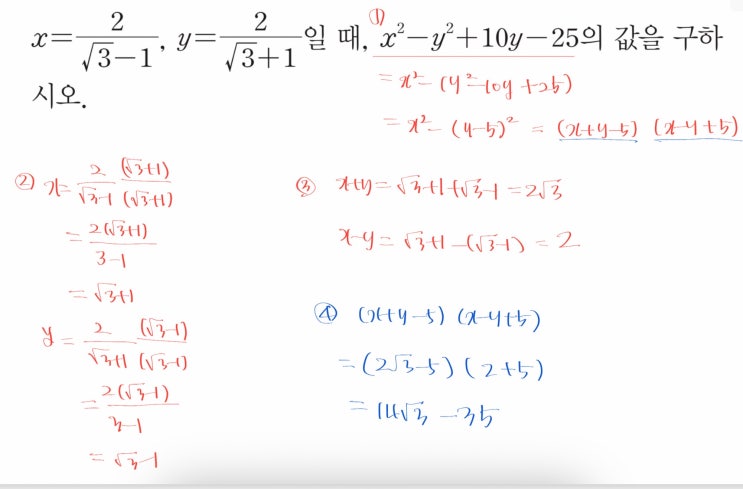 x=2/(√3−1), y=2/(√3+1)일 때, ① x²−y²+10y−25의 값을 구하
시오.
= x²−(y²−10y+25)
= x²−(y−5)² = (x+y−5) (x−y+5)
② x= 2/(√3−1) (√3+1)/(√3+1)
= 2(√3+1)/(3−1)
= √3+1
y = 2/(√3+1) (√3−1)/(√3−1)
= 2(√3−1)/(3−1)
= √3−1
③ x+y= √3+1+√3−1 = 2√3
x−y= √3+1−(√3−1) = 2
④ (x+y−5) (x−y+5)
= (2√3−5) (2+5)
= 14√3 −35